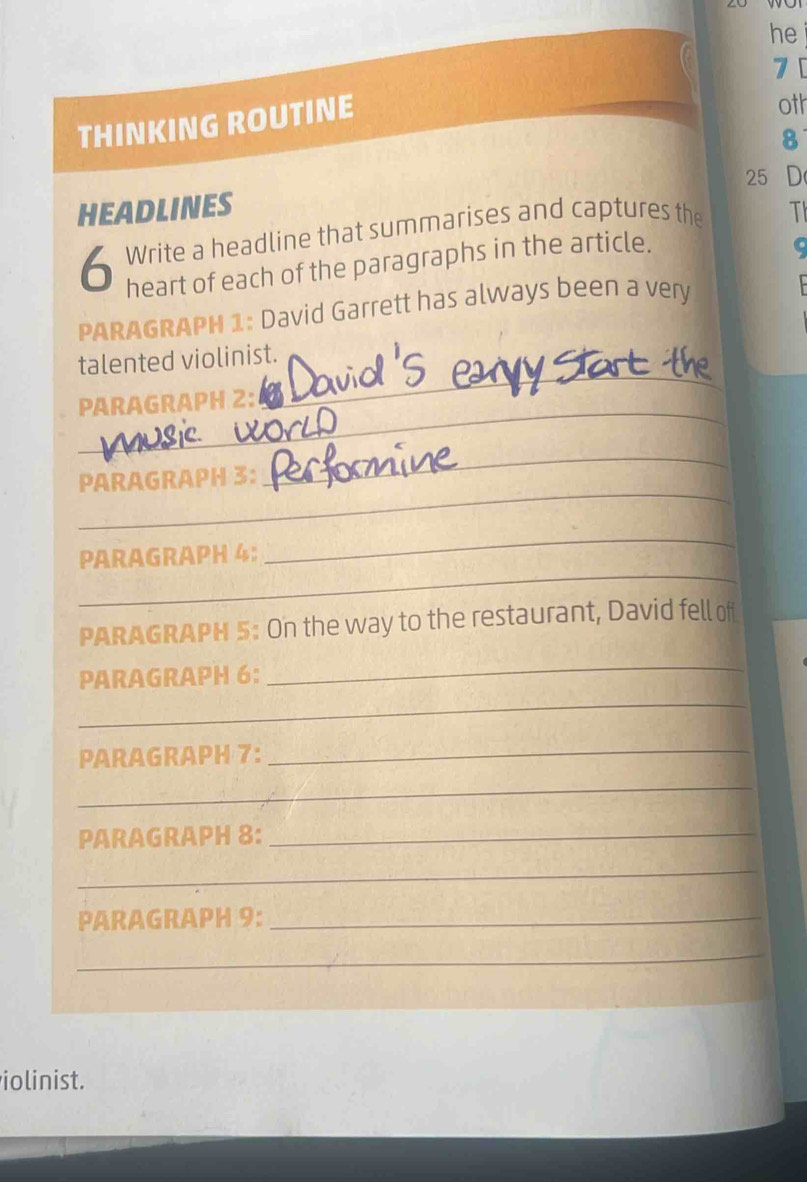 20 wor
he
7
oth
8
25
9
THINKING ROUTINE
HEADLINES
6 Write a headline that summarises and captures the
heart of each of the paragraphs in the article.
PARAGRAPH 1: David Garrett has always been a very
talented violinist.
PARAGRAPH 2: David's earyy start the
music world
PARAGRAPH 3: Performine
PARAGRAPH 4:
PARAGRAPH 5: On the way to the restaurant, David fell off.
PARAGRAPH 6:
PARAGRAPH 7:
PARAGRAPH 8:
PARAGRAPH 9:
violinist.